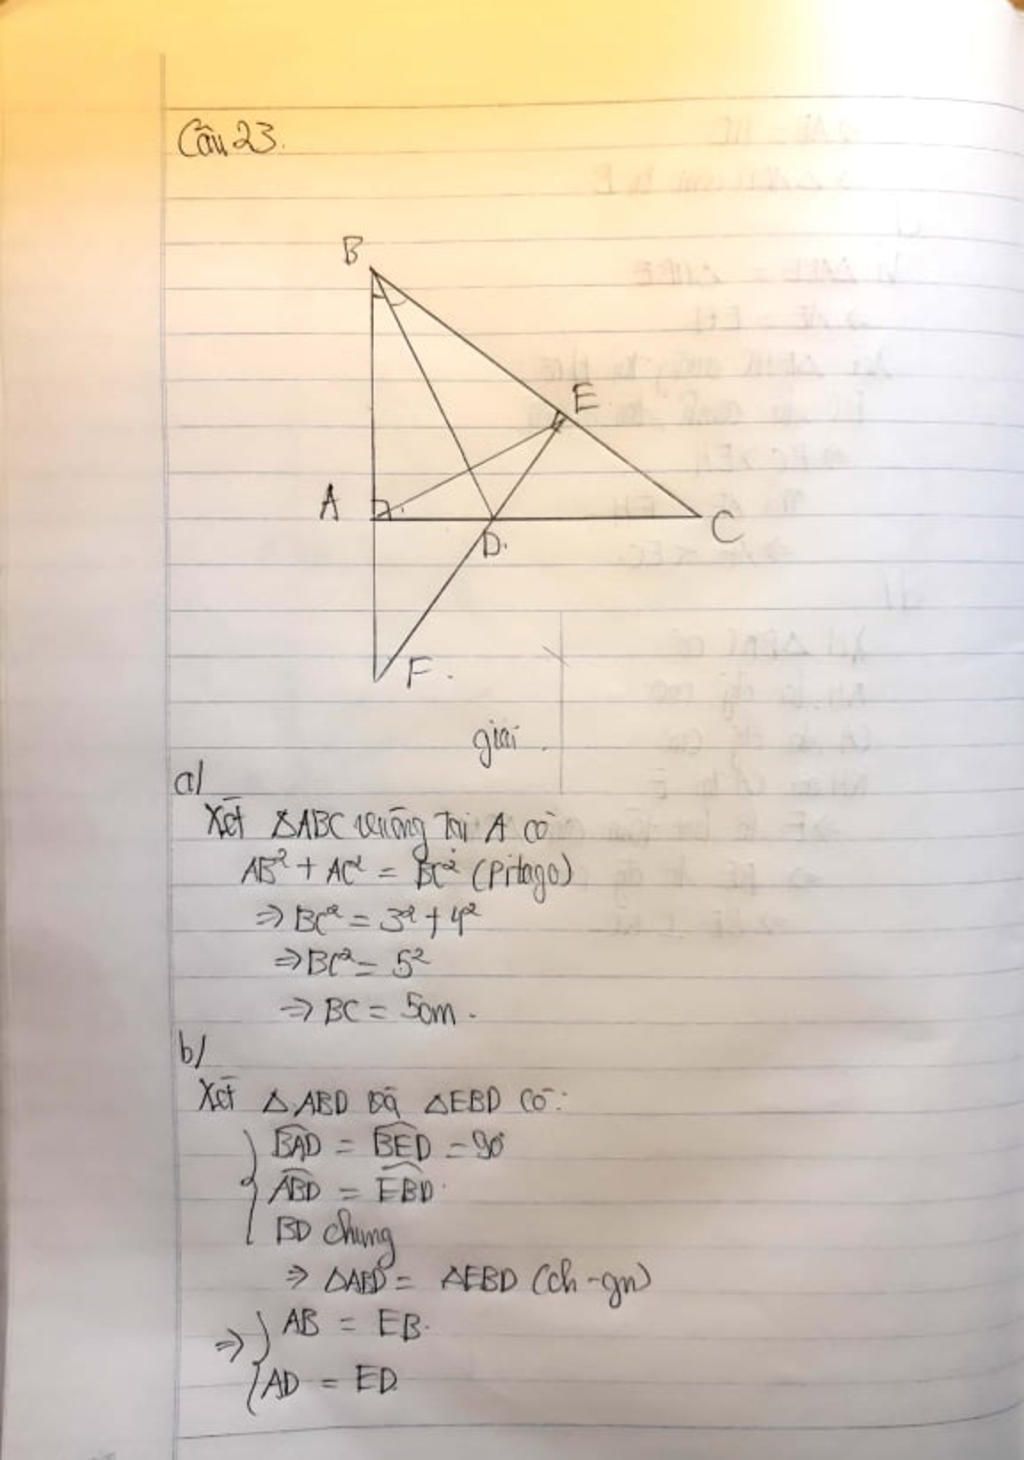 Câu 23.
B
E
A
C
D.
F.
giải.
a/
Xét △ABC vuông tại A có
AB² + AC² = BC² (Pitago)
⇒ BC² = 3² + 4²
⇒ BC² = 5²
⇒ BC = 5cm.
b/
Xét △ABD và △EBD có:
{ BAD̂ = BED̂ = 90°
ABD̂ = EBD̂.
BD chung
⇒ △ABD = △EBD (ch-gn)
⇒ { AB = EB.
AD = ED.